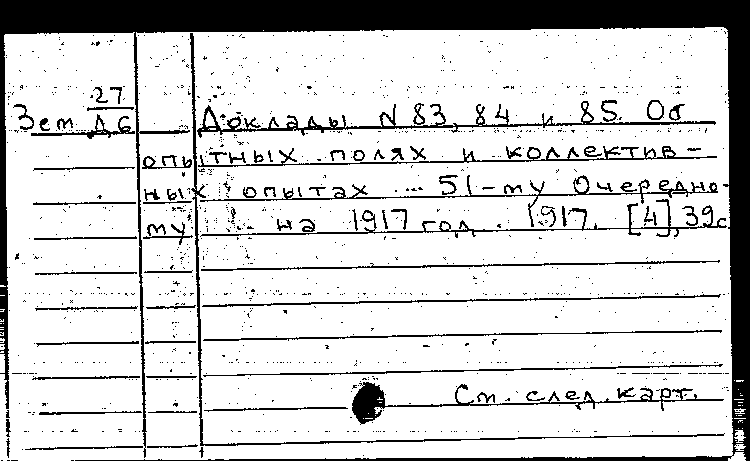 27
Зем Д6 Доклады N 83, 84 и 85. Об
опытных полях и коллектив-
ных опытах ... 51-му Очередно-
му ... на 1917 год. 1917. [4], 39с
См. след. карт.